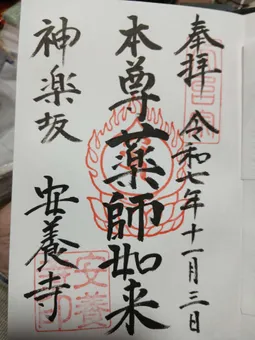 奉拝 令和七年十一月三日
本尊薬師如来
神楽坂 安養寺